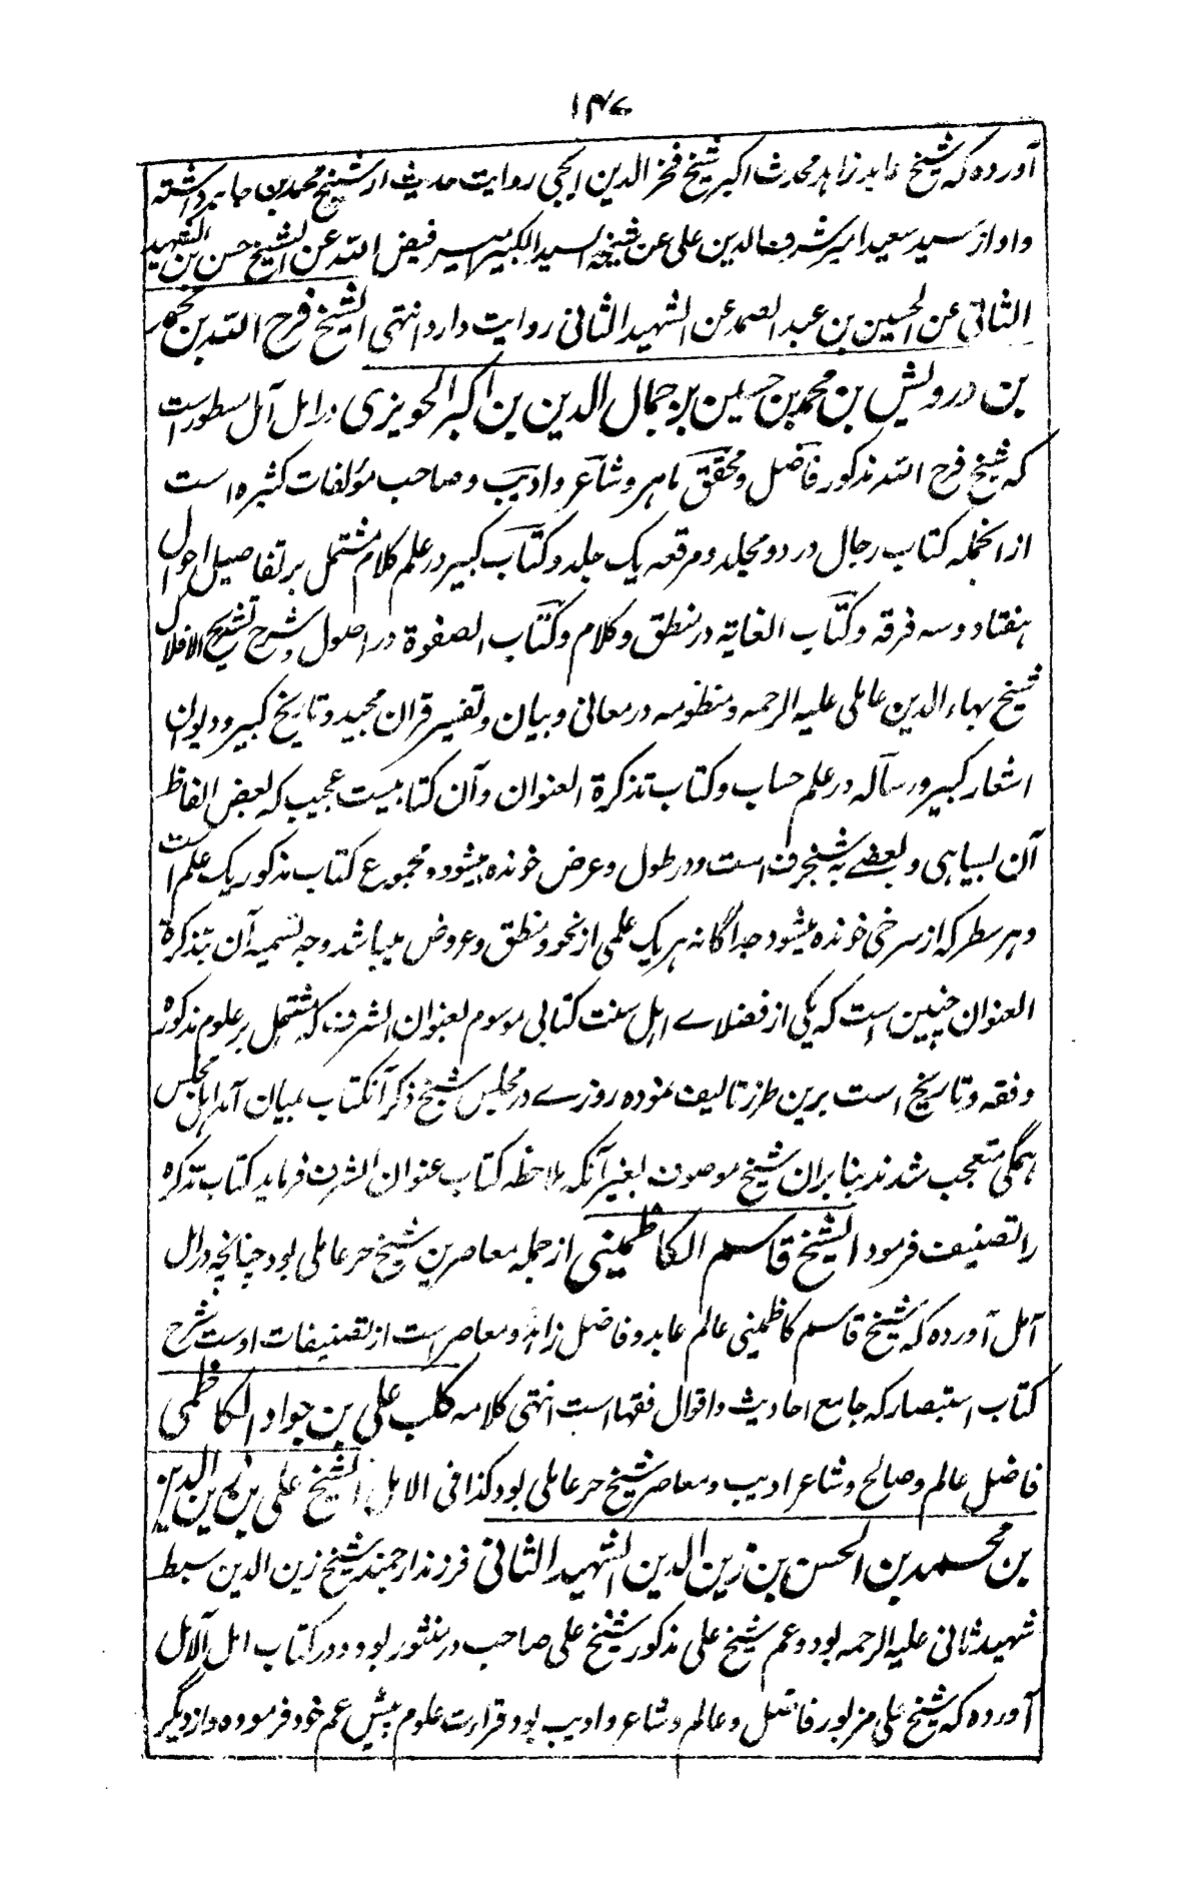 ۱۴۷
آورده که شیخ عابد زاهد محدث اکبر شیخ فخر الدین روایت حدیث از شیخ محمد بن جابر داشته
و او از سید سعید امیر شرف الدین علی عن شیخه السید الکبیر میر فیض الله عن الشیخ حسن بن الشهید
الثانی عن الحسین بن عبد الصمد عن الشهید الثانی روایت دارد انتهی الشیخ فرح الله بن محمد
بن درویش بن محمد بن حسین بن جمال الدین بن اکبر الحویزی در امل آمل مسطور است
که شیخ فرح الله مذکور فاضل و محقق ماهر و شاعر و ادیب و صاحب مؤلفات کثیره است
از انجمله کتاب رجال در دو مجلد و مرقعه یک جلد و کتاب کبیر در علم کلام مشتمل بر تفاصیل احوال
هفتاد و سه فرقه و کتاب الغایة در منطق و کلام و کتاب الصفوة در اصول و شرح تشریح الافلاک
شیخ بهاء الدین عاملی علیه الرحمه و منظومه در معانی و بیان و تفسیر قران مجید و تاریخ کبیر و دیوان
اشعار کبیر و رساله در علم حساب و کتاب تذکرة العنوان و آن کتابیست عجیب که بعض الفاظ
آن بسیاهی و بعضے به شنجرف است و در طول و عرض خوانده میشود و مجموع کتاب مذکور یک علم است
و هر سطر که از سرخی خوانده میشود جداگانه هر یک علمی از نحو و منطق و عروض میباشد وجه تسمیه آن بتذکرة
العنوان چنین است که یکی از فضلاے اهل سنت کتابی موسوم بعنوان الشرف که مشتمل بر علوم مذکوره
و فقه و تاریخ است برین طرز تالیف نموده روزے در مجلس شیخ ذکر آنکتاب بمیان آمد اهل مجلس
همگی متعجب شدند بنابران شیخ موصوف بغیر آنکه ملاحظه کتاب عنوان الشرف فرماید کتاب تذکره
را تصنیف فرمود الشیخ قاسم الکاظمینی از جمله معاصرین شیخ حر عاملی بود چنانچه در امل
آمل آورده که شیخ قاسم کاظمینی عالم عابد و فاضل زاهد و معاصر است از تصنیفات اوست شرح
کتاب استبصار که جامع احادیث و اقوال فقها است انتهی کلامه کلب علی بن جواد الکاظمی
فاضل عالم و صالح و شاعر ادیب و معاصر شیخ حر عاملی بود کذا فی الامل الشیخ علی بن زین الدین
بن محمد بن الحسن بن زین الدین الشهید الثانی فرزند ارجمند شیخ زین الدین سبط
شهید ثانی علیه الرحمه بود و عم شیخ علی مذکور شیخ علی صاحب در منثور بود و در کتاب امل الآمل
آورده که شیخ علی مزبور فاضل و عالم و شاعر و ادیب بود قراءت علوم پیش عم خود فرموده و از دیگر